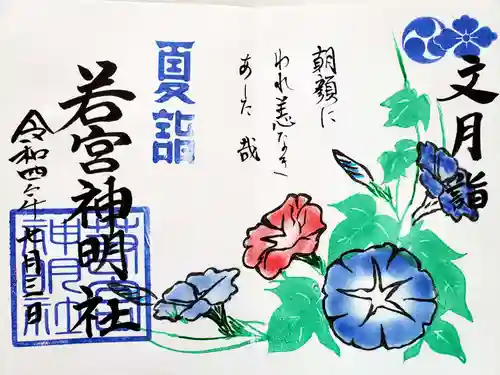 文月詣
朝顔に
われ恙なき
あした哉
夏詣
若宮神明社
令和四年七月三日
若宮
神明社